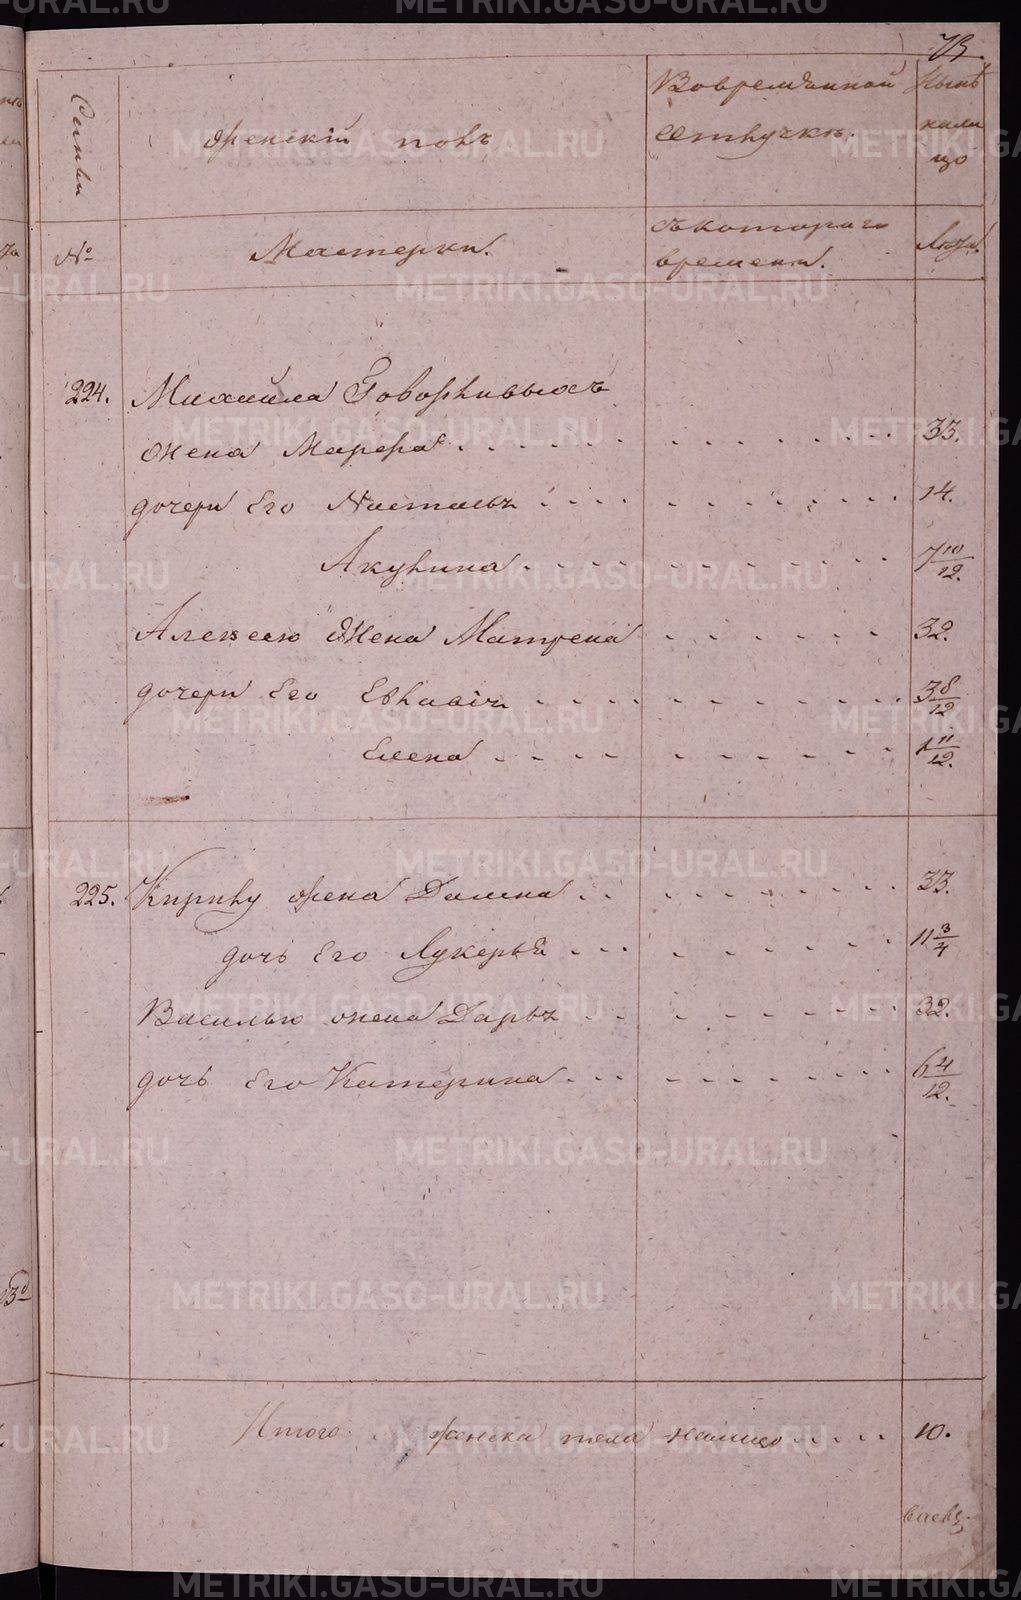 73.
Семьи
Женскій полъ
Вовременной
отлучкѣ.
Нынѣ
нали
цо
№
Мастерки.
Съкотораго
времени.
Лѣта.
224. Михайла Говорливыхъ
жена Марфа 33.
дочери Его Настасья 14.
Акулина 7 10/12.
Алексею Жена Матрена 32.
дочери Его Евлавія 3 8/12
Елена 1 11/12.
225. Кирилу жена Домна 33.
дочь Его Лукерья 11 3/4
Василью жена Дарья 32.
дочь Его Катерина 6 4/12.
Итого женска пола налицо 10.
METRIKI.GASO-URAL.RU